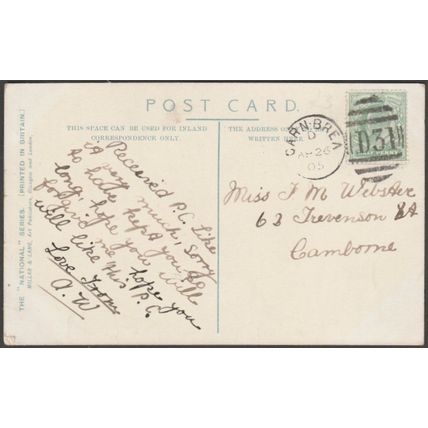 POST CARD.
THIS SPACE CAN BE USED FOR INLAND
CORRESPONDENCE ONLY.
THE ADDRESS ONLY
WRITTEN HERE.
THE "NATIONAL" SERIES. (PRINTED IN BRITAIN.)
MILLAR & LANG, Art Publishers, Glasgow and London.
Received P.C. Like
it very much, Sorry
to have kept you so
long, hope you will
forgive me hope you
will like this P.C.
Love from
A. W
CARN-BREA
D
AP 26
05
D31
Miss F M Webster
63 Trevenson
Camborne